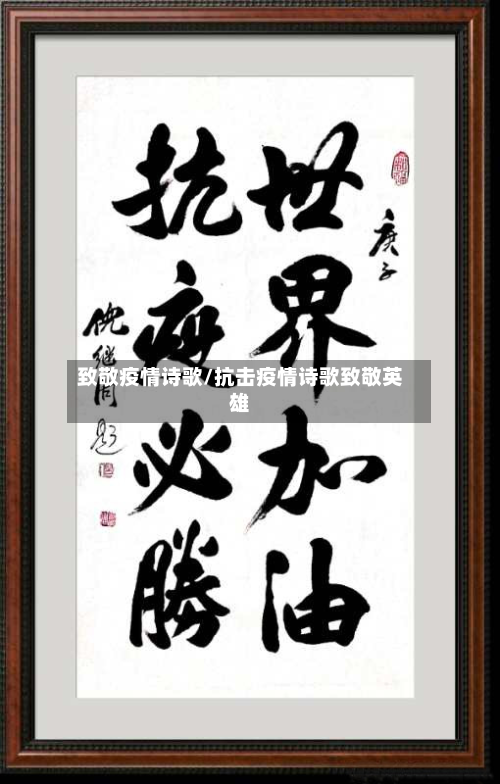 庚子
世界加油
抗疫必勝
倪继题
致敬疫情诗歌/抗击疫情诗歌致敬英
雄